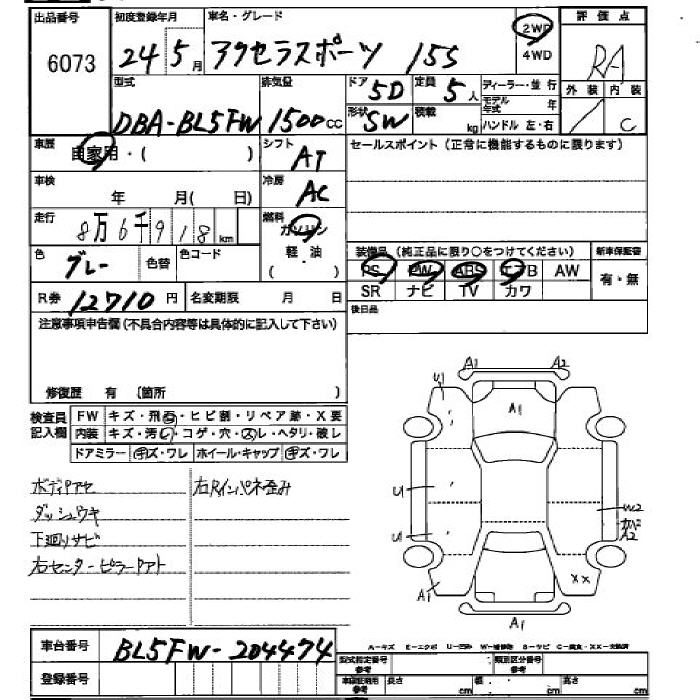 出品番号 初度登録年月 車名・グレード 2WD 評価点
6073 24 5月 アクセラスポーツ 15S 4WD RA
型式 排気量 ドア 5D 定員 5人 ディーラー・並行 外装 内装
DBA-BL5FW 1500cc 形状 SW 積載 kg モデル年式 年 / C
ハンドル 左・右
車歴 自家用・( ) シフト AT セールスポイント(正常に機能するものに限ります)
車検 年 月( 日) 冷房 AC
走行 8万6千918km 燃料 ガソリン
色 グレー 色替 色コード 軽・油 装備品(純正品に限り○をつけてください) 新車保証書
( ・ ) PS PW ABS エアB AW 有・無
R券 12710円 名変期限 月 日 SR ナビ TV カワ
注意事項申告欄(不具合内容等は具体的に記入して下さい) 後日品
修復歴 有 〔箇所 〕
検査員記入欄 FW キズ・飛石・ヒビ割・リペア跡・X要
内装 キズ・汚レ・コゲ・穴・スレ・ヘタリ・破レ
ドアミラー キズ・ワレ ホイール・キャップ キズ・ワレ
ボディアセ 右Rインパネ歪み
ダッシュウキ
下廻リサビ
右センターピラーアト
A1 A2
U1 A1
U W2
カバ2
U A2
A1 XX
A1
A-キズ E-エクボ U-凹み W-補修跡 S-サビ C-腐食・XX-交換済
車台番号 BL5FW-204474
型式指定番号 参考 類別区分番号 参考
登録番号 車検証用 参考 長さ cm 幅 cm 高さ cm